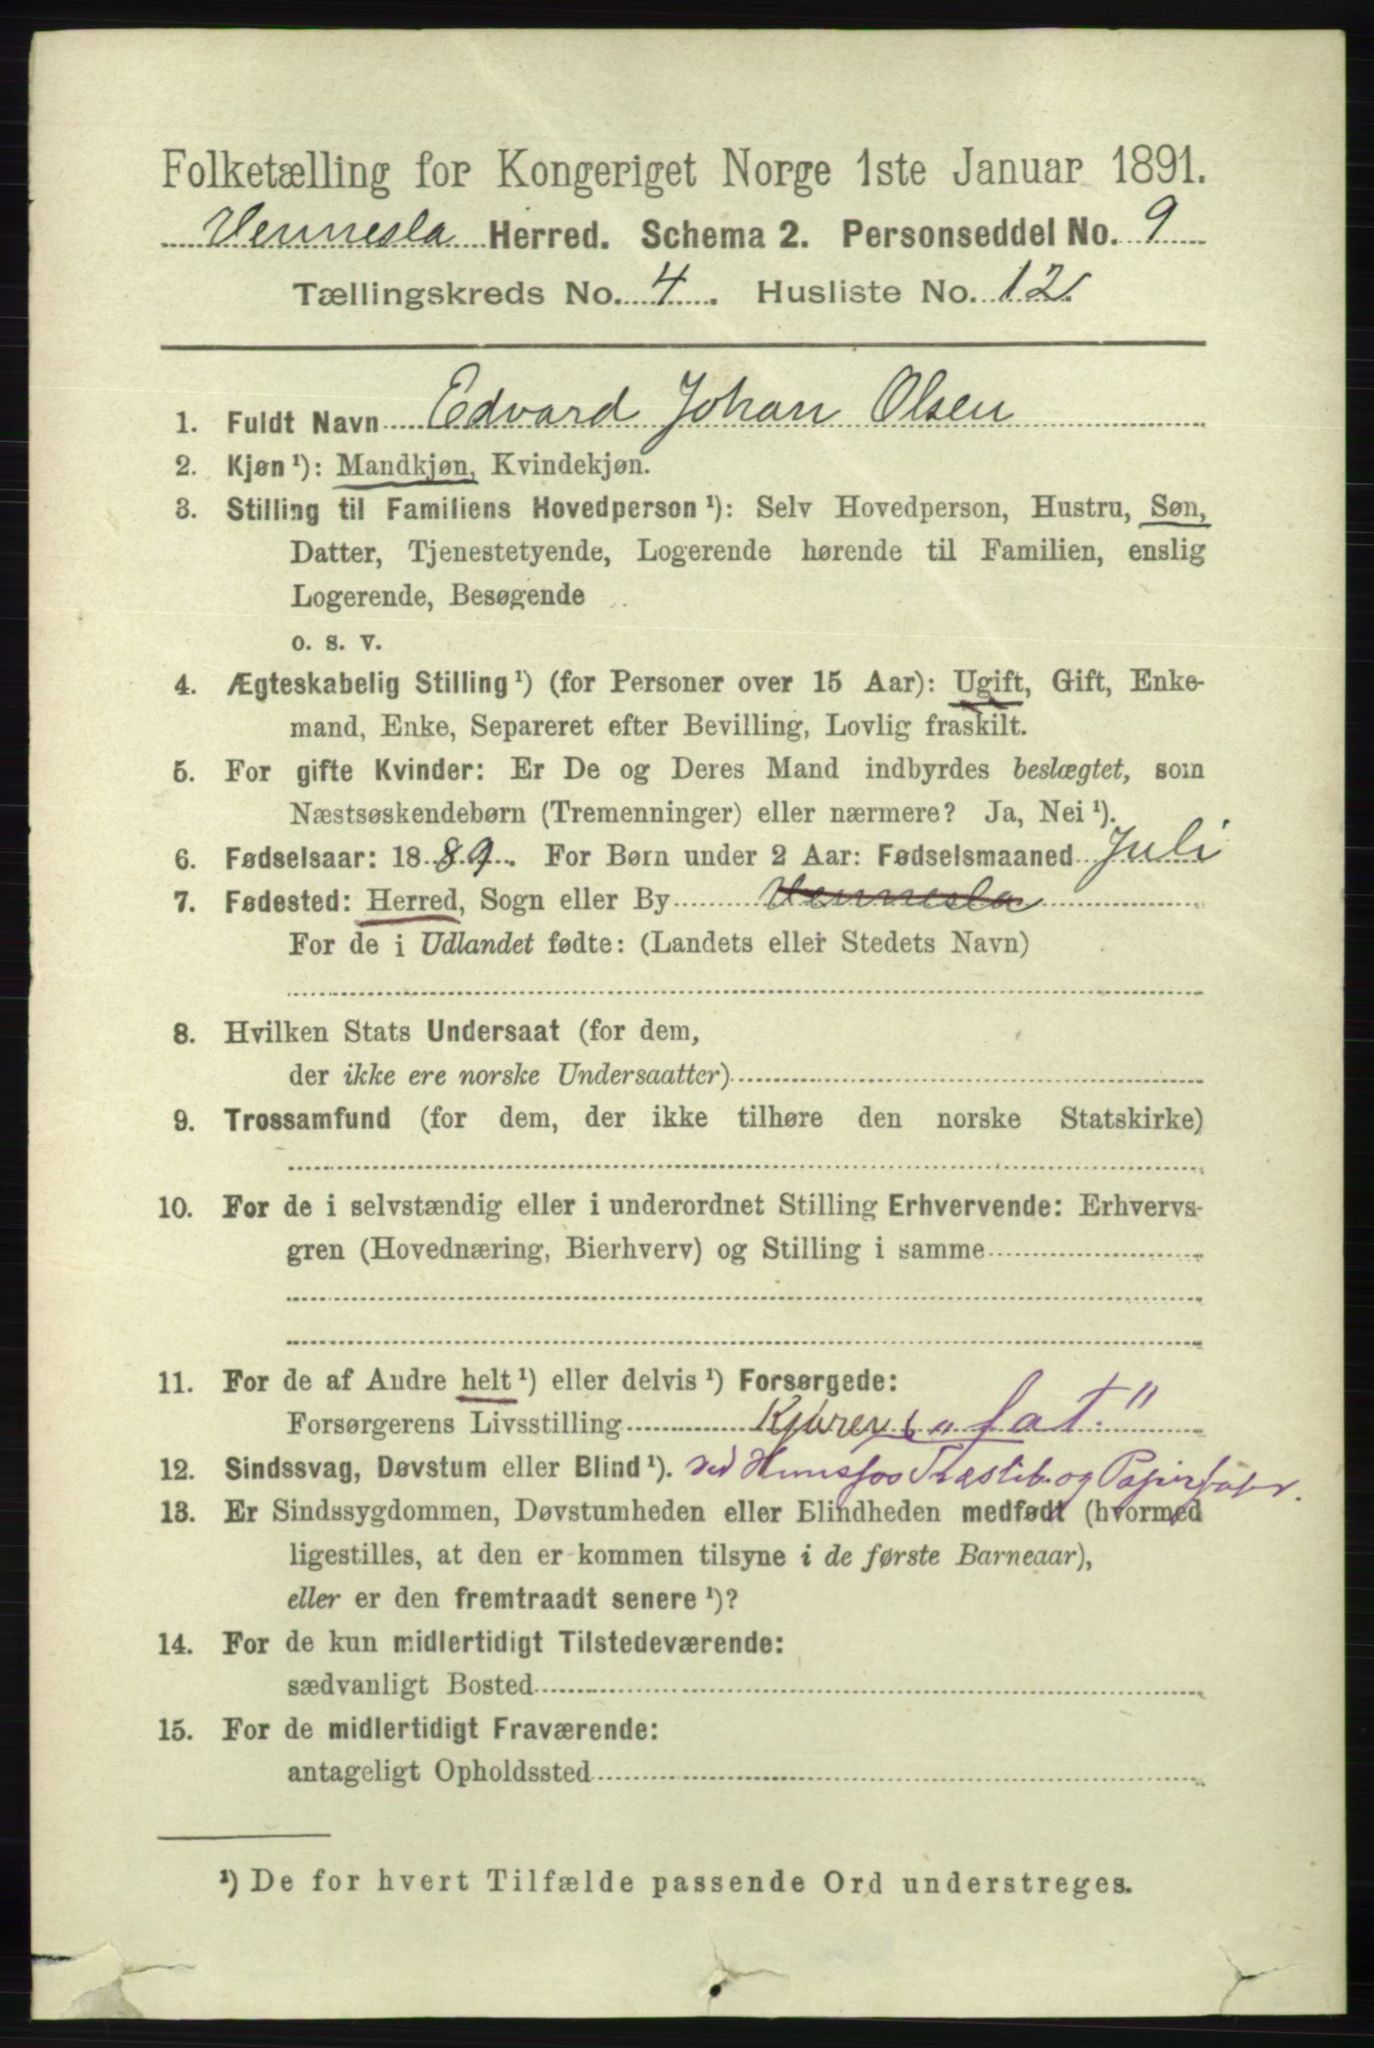 Folketælling for Kongeriget Norge 1ste Januar 1891.
Vennesla Herred. Schema 2. Personseddel No. 9
Tællingskreds No. 4. Husliste No. 12.
1. Fuldt Navn Edvard Johan Olsen
2. Kjøn ¹): Mandkjøn, Kvindekjøn.
3. Stilling til Familiens Hovedperson ¹): Selv Hovedperson, Hustru, Søn,
Datter, Tjenestetyende, Logerende hørende til Familien, enslig
Logerende, Besøgende
o. s. v.
4. Ægteskabelig Stilling ¹) (for Personer over 15 Aar): Ugift, Gift, Enke-
mand, Enke, Separeret efter Bevilling, Lovlig fraskilt.
5. For gifte Kvinder: Er De og Deres Mand indbyrdes beslægtet, som
Næstsøskendebørn (Tremenninger) eller nærmere? Ja, Nei ¹).
6. Fødselsaar: 1889. For Børn under 2 Aar: Fødselsmaaned Juli
7. Fødested: Herred, Sogn eller By Vennesla
For de i Udlandet fødte: (Landets eller Stedets Navn)
8. Hvilken Stats Undersaat (for dem,
der ikke ere norske Undersaatter)
9. Trossamfund (for dem, der ikke tilhøre den norske Statskirke)
10. For de i selvstændig eller i underordnet Stilling Erhvervende: Erhvervs-
gren (Hovednæring, Bierhverv) og Stilling i samme
11. For de af Andre helt ¹) eller delvis ¹) Forsørgede:
Forsørgerens Livsstilling Kjører „fat."
12. Sindssvag, Døvstum eller Blind ¹). ved Hunsfos Træslib. og Papirfabr.
13. Er Sindssygdommen, Døvstumheden eller Blindheden medfødt (hvormed
ligestilles, at den er kommen tilsyne i de første Barneaar),
eller er den fremtraadt senere ¹)?
14. For de kun midlertidigt Tilstedeværende:
sædvanligt Bosted
15. For de midlertidigt Fraværende:
antageligt Opholdssted
¹) De for hvert Tilfælde passende Ord understreges.